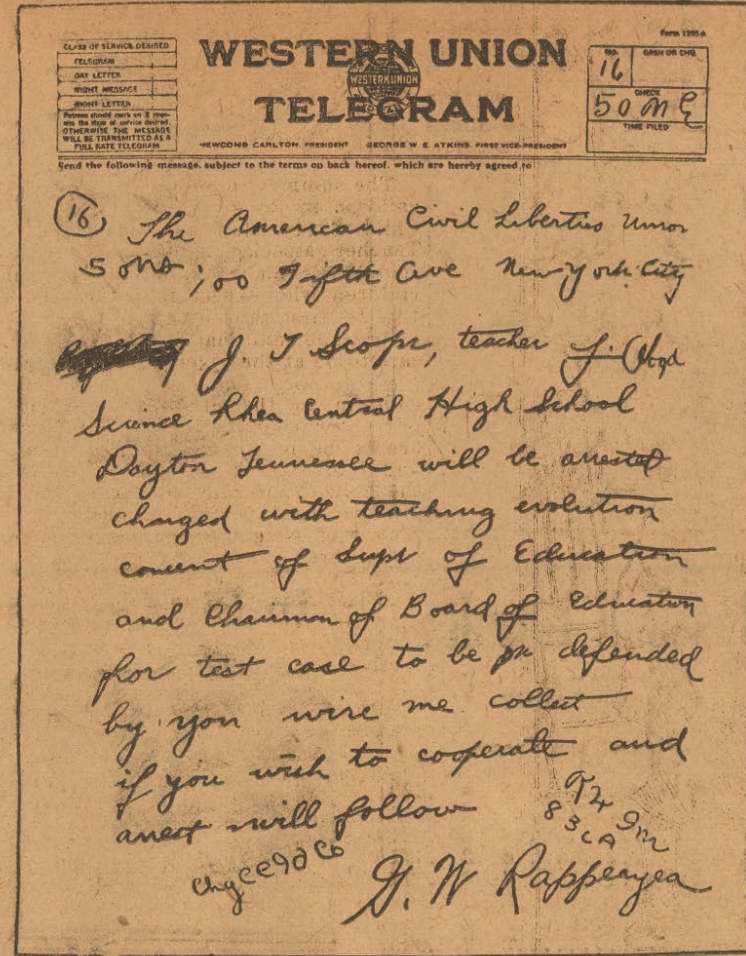 Form 1206A
CLASS OF SERVICE DESIRED
TELEGRAM
DAY LETTER
NIGHT MESSAGE
NIGHT LETTER
Patrons should mark an X oppo-
site the class of service desired:
OTHERWISE THE MESSAGE
WILL BE TRANSMITTED AS A
FULL-RATE TELEGRAM
WESTERN UNION
WESTERN UNION
TELEGRAM
NEWCOMB CARLTON, PRESIDENT GEORGE W. E. ATKINS, FIRST VICE-PRESIDENT
NO. CASH OR CHG.
16
CHECK
50
TIME FILED
Send the following message, subject to the terms on back hereof, which are hereby agreed to
16 The American Civil Liberties Union
100 Fifth Ave New York City
J. T Scopes, teacher
Science Rhea Central High School
Dayton Tennessee will be arrested
charged with teaching evolution
consent of Supt of Education
and Chairman of Board of Education
for test case to be defended
by you wire me collect
if you wish to cooperate and
arrest will follow
G. W Rappeayea